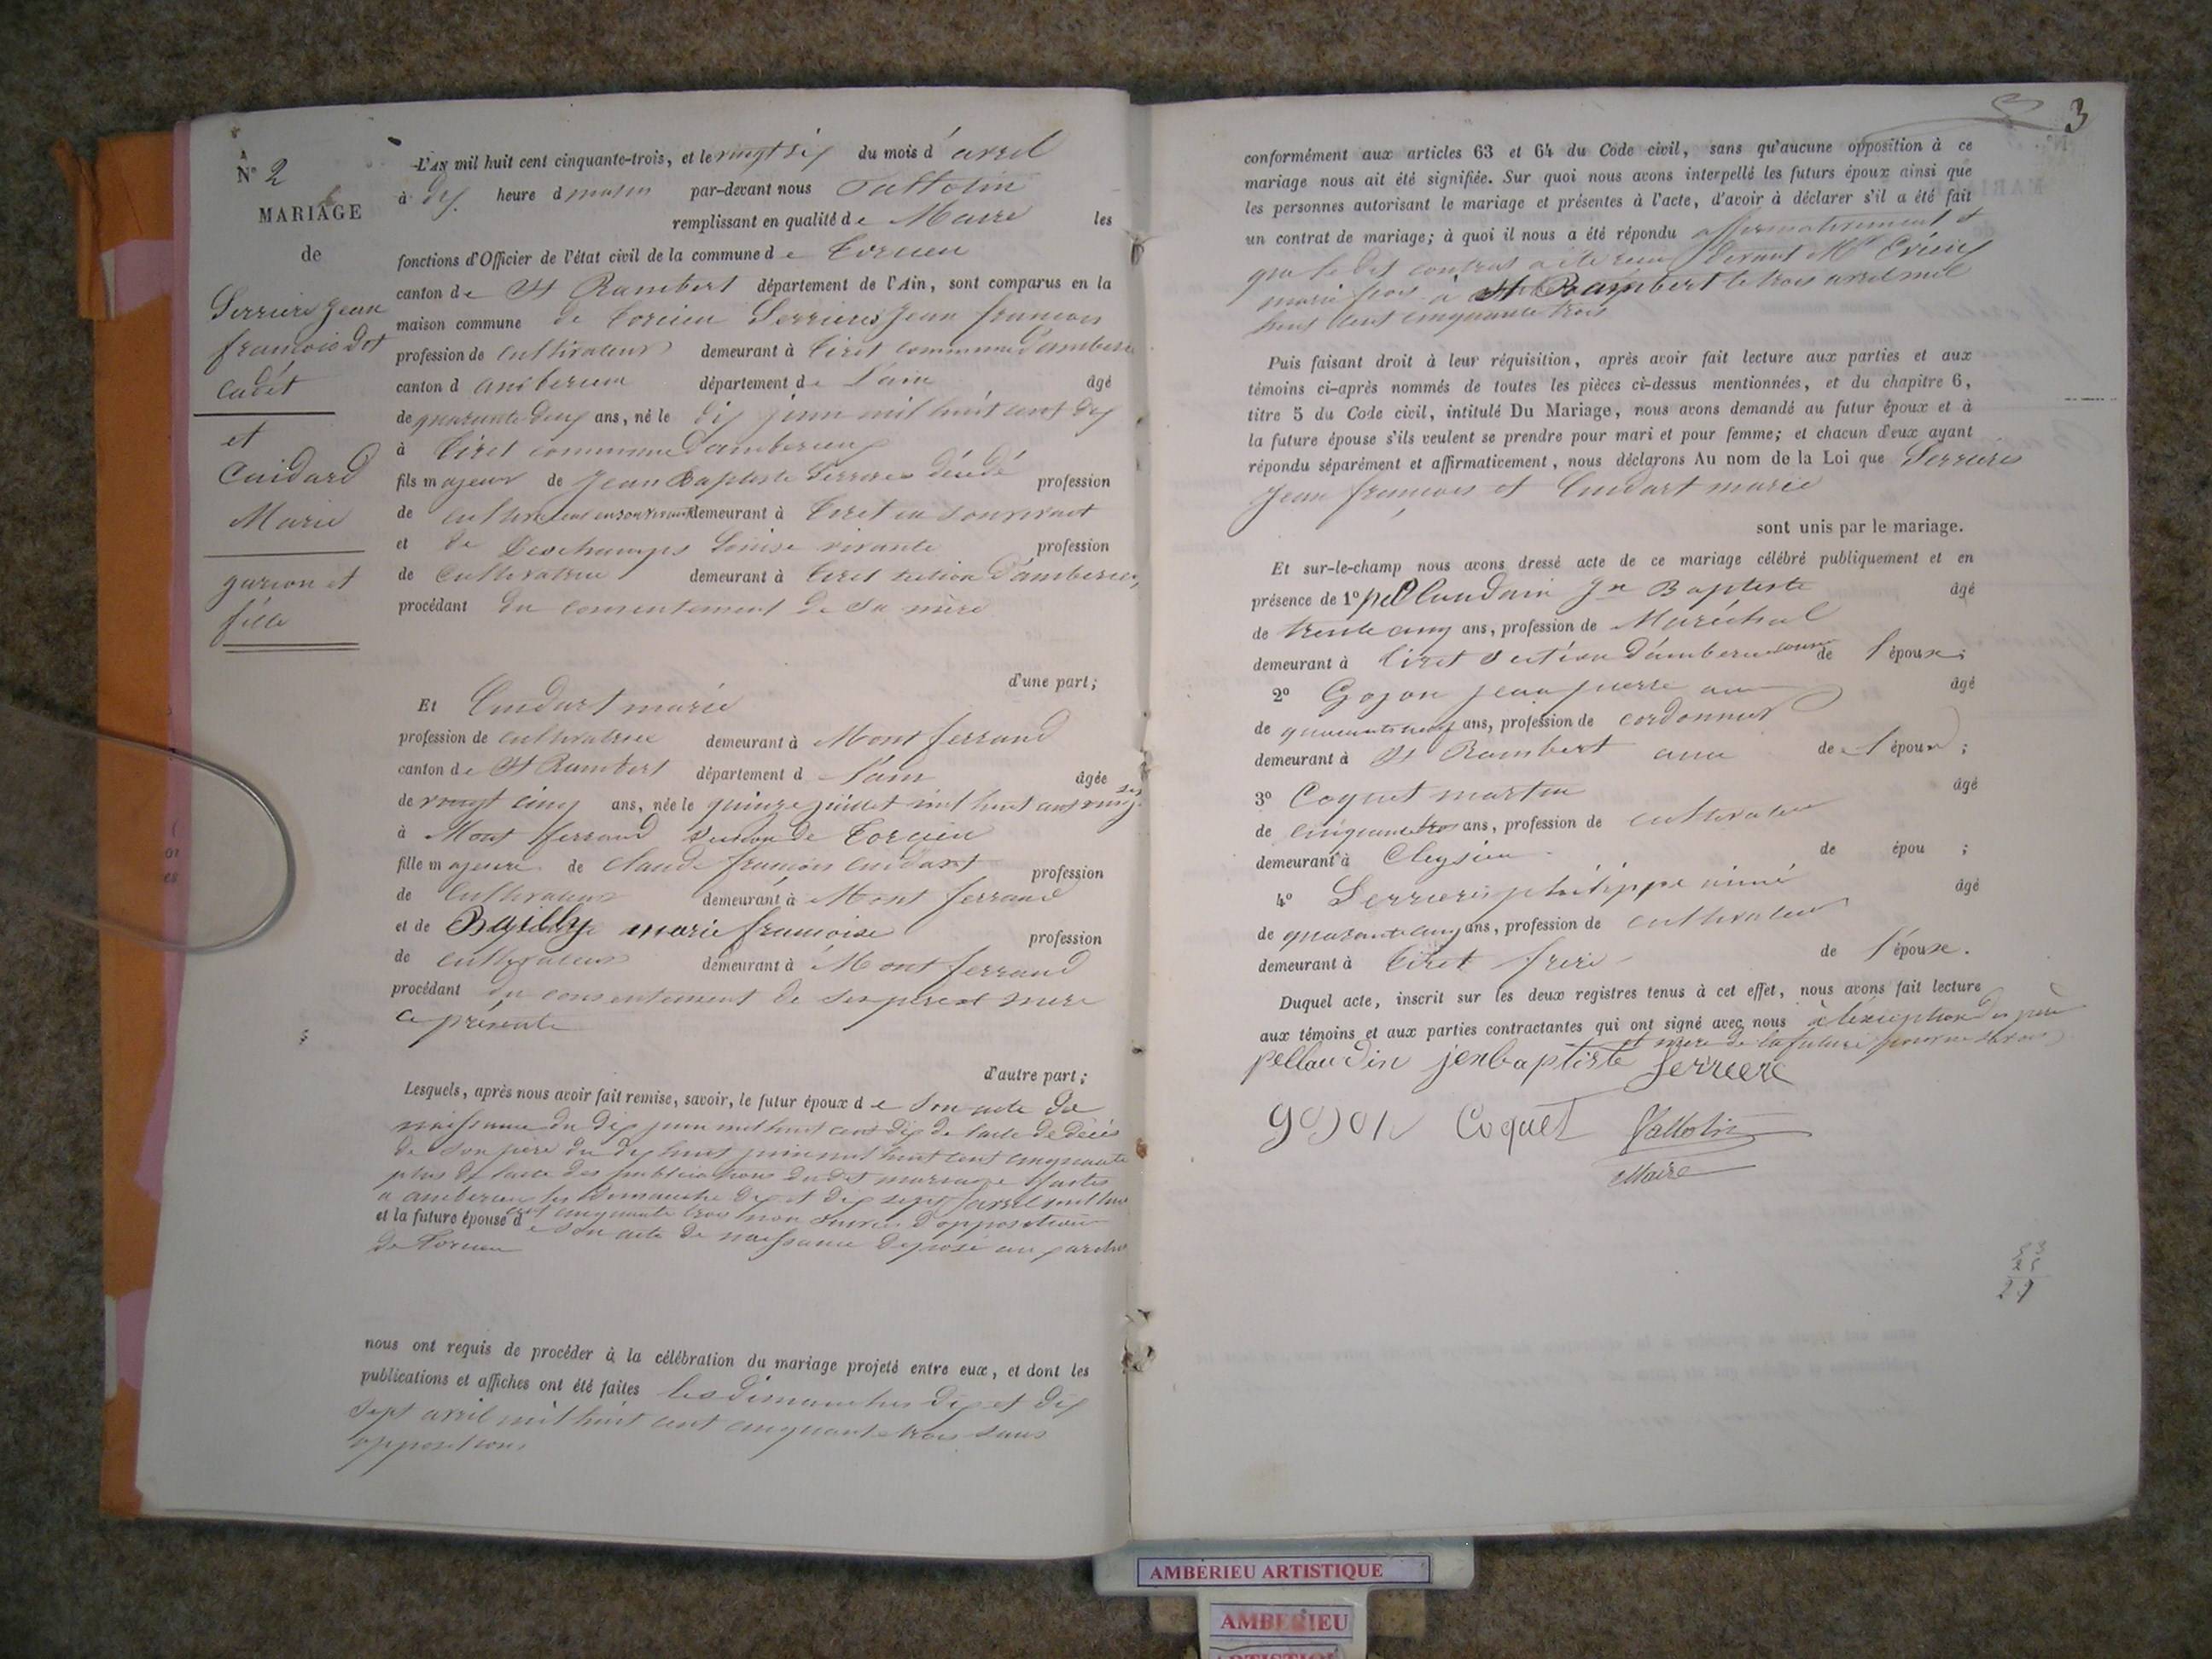 N° 2
MARIAGE
de
Serriere Jean
françois dit
cadet
et
Cuidard
Marie
garçon et
fille
L'AN mil huit cent cinquante-trois, et le vingt six du mois d'avril
à dix heure d matin par-devant nous
remplissant en qualité de Maire les
fonctions d'Officier de l'état civil de la commune de Torcieu
canton de St Rambert département de l'Ain, sont comparus en la
maison commune de Torcieu Serrieres Jean francois
profession de cultivateur demeurant à Tiret commune d'ambérieu
canton d ambérieu département de l'ain âgé
de quarante deux ans, né le dix juin mil huit cent dix
à Tiret commune d'amberieux
fils majeur de Jean Baptiste Serrieres décédé profession
de cultivateur en son vivant demeurant à Tiret en son vivant
et de Deschamps Louise vivante profession
de cultivatrice demeurant à Tiret section d'amberieux
procédant du consentement de sa mère
d'une part;
Et Cuidart marie
profession de cultivatrice demeurant à Mont ferrand
canton de St Rambert département d l'ain âgée
de vingt cinq ans, née le quinze juillet mil huit cent vingt sept
à Mont ferrand section de Torcieu
fille majeure de claude françois cuidart profession
de Cultivateur demeurant à Mont ferrand
et de Bailly marie francoise profession
de cultivateur demeurant à Mont ferrand
procédant du consentement de ses pere et mere
ce présente
d'autre part;
Lesquels, après nous avoir fait remise, savoir, le futur époux de son acte de
naissance du dix juin mil huit cent dix de l'acte de décès
de son père du dix huit juin mil huit cent cinquante
plus de l'acte des publications du dit mariage faites
a amberieu les dimanche dix et dix sept avril mil huit
cent cinquante trois non suivies d'opposition
et la future épouse de son acte de naissance déposé au
de Torcieu
nous ont requis de procéder à la célébration du mariage projeté entre eux, et dont les
publications et affiches ont été faites les dimanches dix et dix
sept avril mil huit cent cinquante trois sans
oppositions
3
conformément aux articles 63 et 64 du Code civil, sans qu'aucune opposition à ce
mariage nous ait été signifiée. Sur quoi nous avons interpellé les futurs époux ainsi que
les personnes autorisant le mariage et présentes à l'acte, d'avoir à déclarer s'il a été fait
un contrat de mariage; à quoi il nous a été répondu affirmativement et
que le dit contrat a été reçu devant Me
à St Rambert le trois avril mil
huit cent cinquante trois
Puis faisant droit à leur réquisition, après avoir fait lecture aux parties et aux
témoins ci-après nommés de toutes les pièces ci-dessus mentionnées, et du chapitre 6,
titre 5 du Code civil, intitulé Du Mariage, nous avons demandé au futur époux et à
la future épouse s'ils veulent se prendre pour mari et pour femme; et chacun d'eux ayant
répondu séparément et affirmativement, nous déclarons Au nom de la Loi que Serrieres
Jean francois et Cuidart marie
sont unis par le mariage.
Et sur-le-champ nous avons dressé acte de ce mariage célébré publiquement et en
présence de 1° pellaudain Jn Baptiste âgé
de trente cinq ans, profession de Maréchal
demeurant à Tiret section d'amberieu de l'époux;
2° Gojon jean pierre âgé
de quarante neuf ans, profession de cordonnier
demeurant à St Rambert ami de l'époux;
3° Coquet martin âgé
de cinquante trois ans, profession de cultivateur
demeurant à Cleyzieu de épou ;
4° Serrieres philippe aimé âgé
de quarante cinq ans, profession de cultivateur
demeurant à Tiret frere de l'époux.
Duquel acte, inscrit sur les deux registres tenus à cet effet, nous avons fait lecture
aux témoins et aux parties contractantes qui ont signé avec nous à l'exception des père
et mere de la future
pellaudin jenbaptiste Serriere
gojon Coquet
Maire
AMBÉRIEU ARTISTIQUE
AMBERIEU
ARTISTIQUE